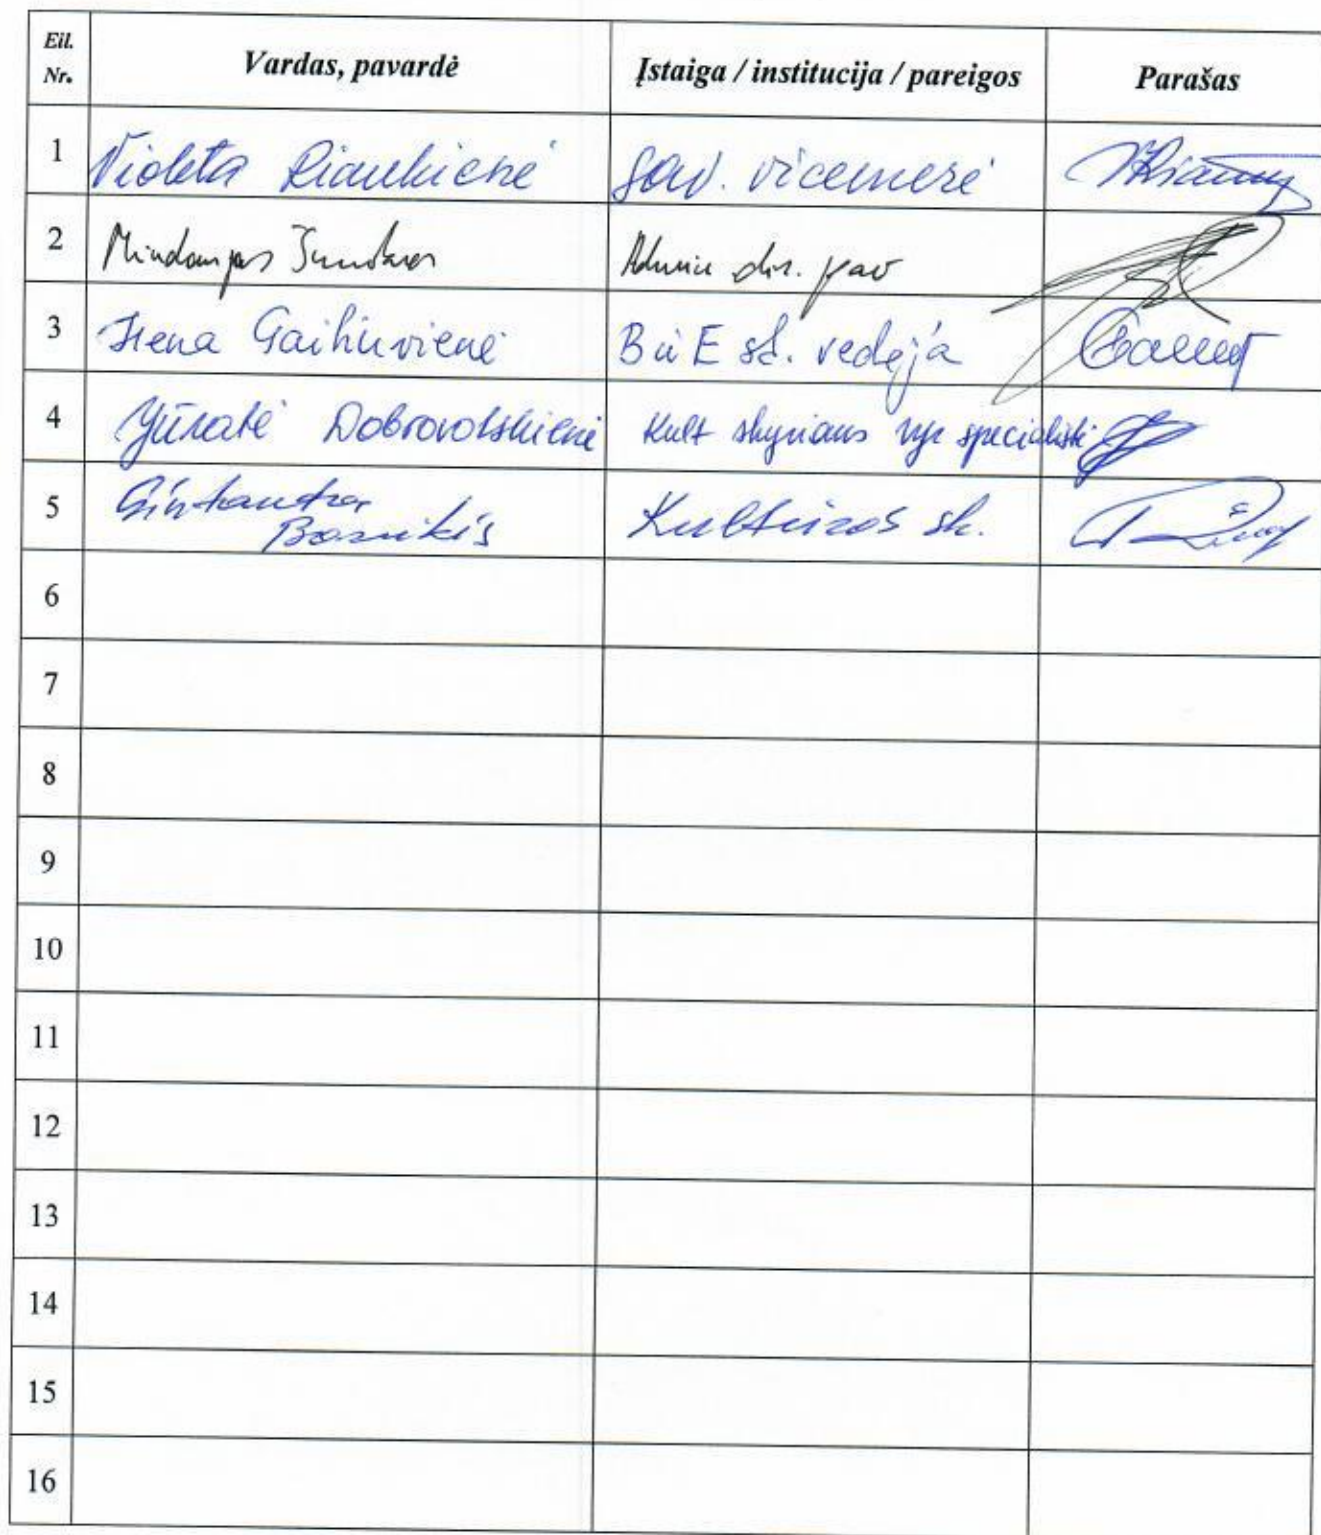 Eil. Nr. Vardas, pavardė Įstaiga / institucija / pareigos Parašas
1 Violeta sav. vicemerė
2 Admin dir. pav
3 Irena B ir E sk. vedėja
4 Jūratė Dobrovolskienė Kult skyriaus vyr specialistė
5 Gintautas
Kultūros sk.
6
7
8
9
10
11
12
13
14
15
16